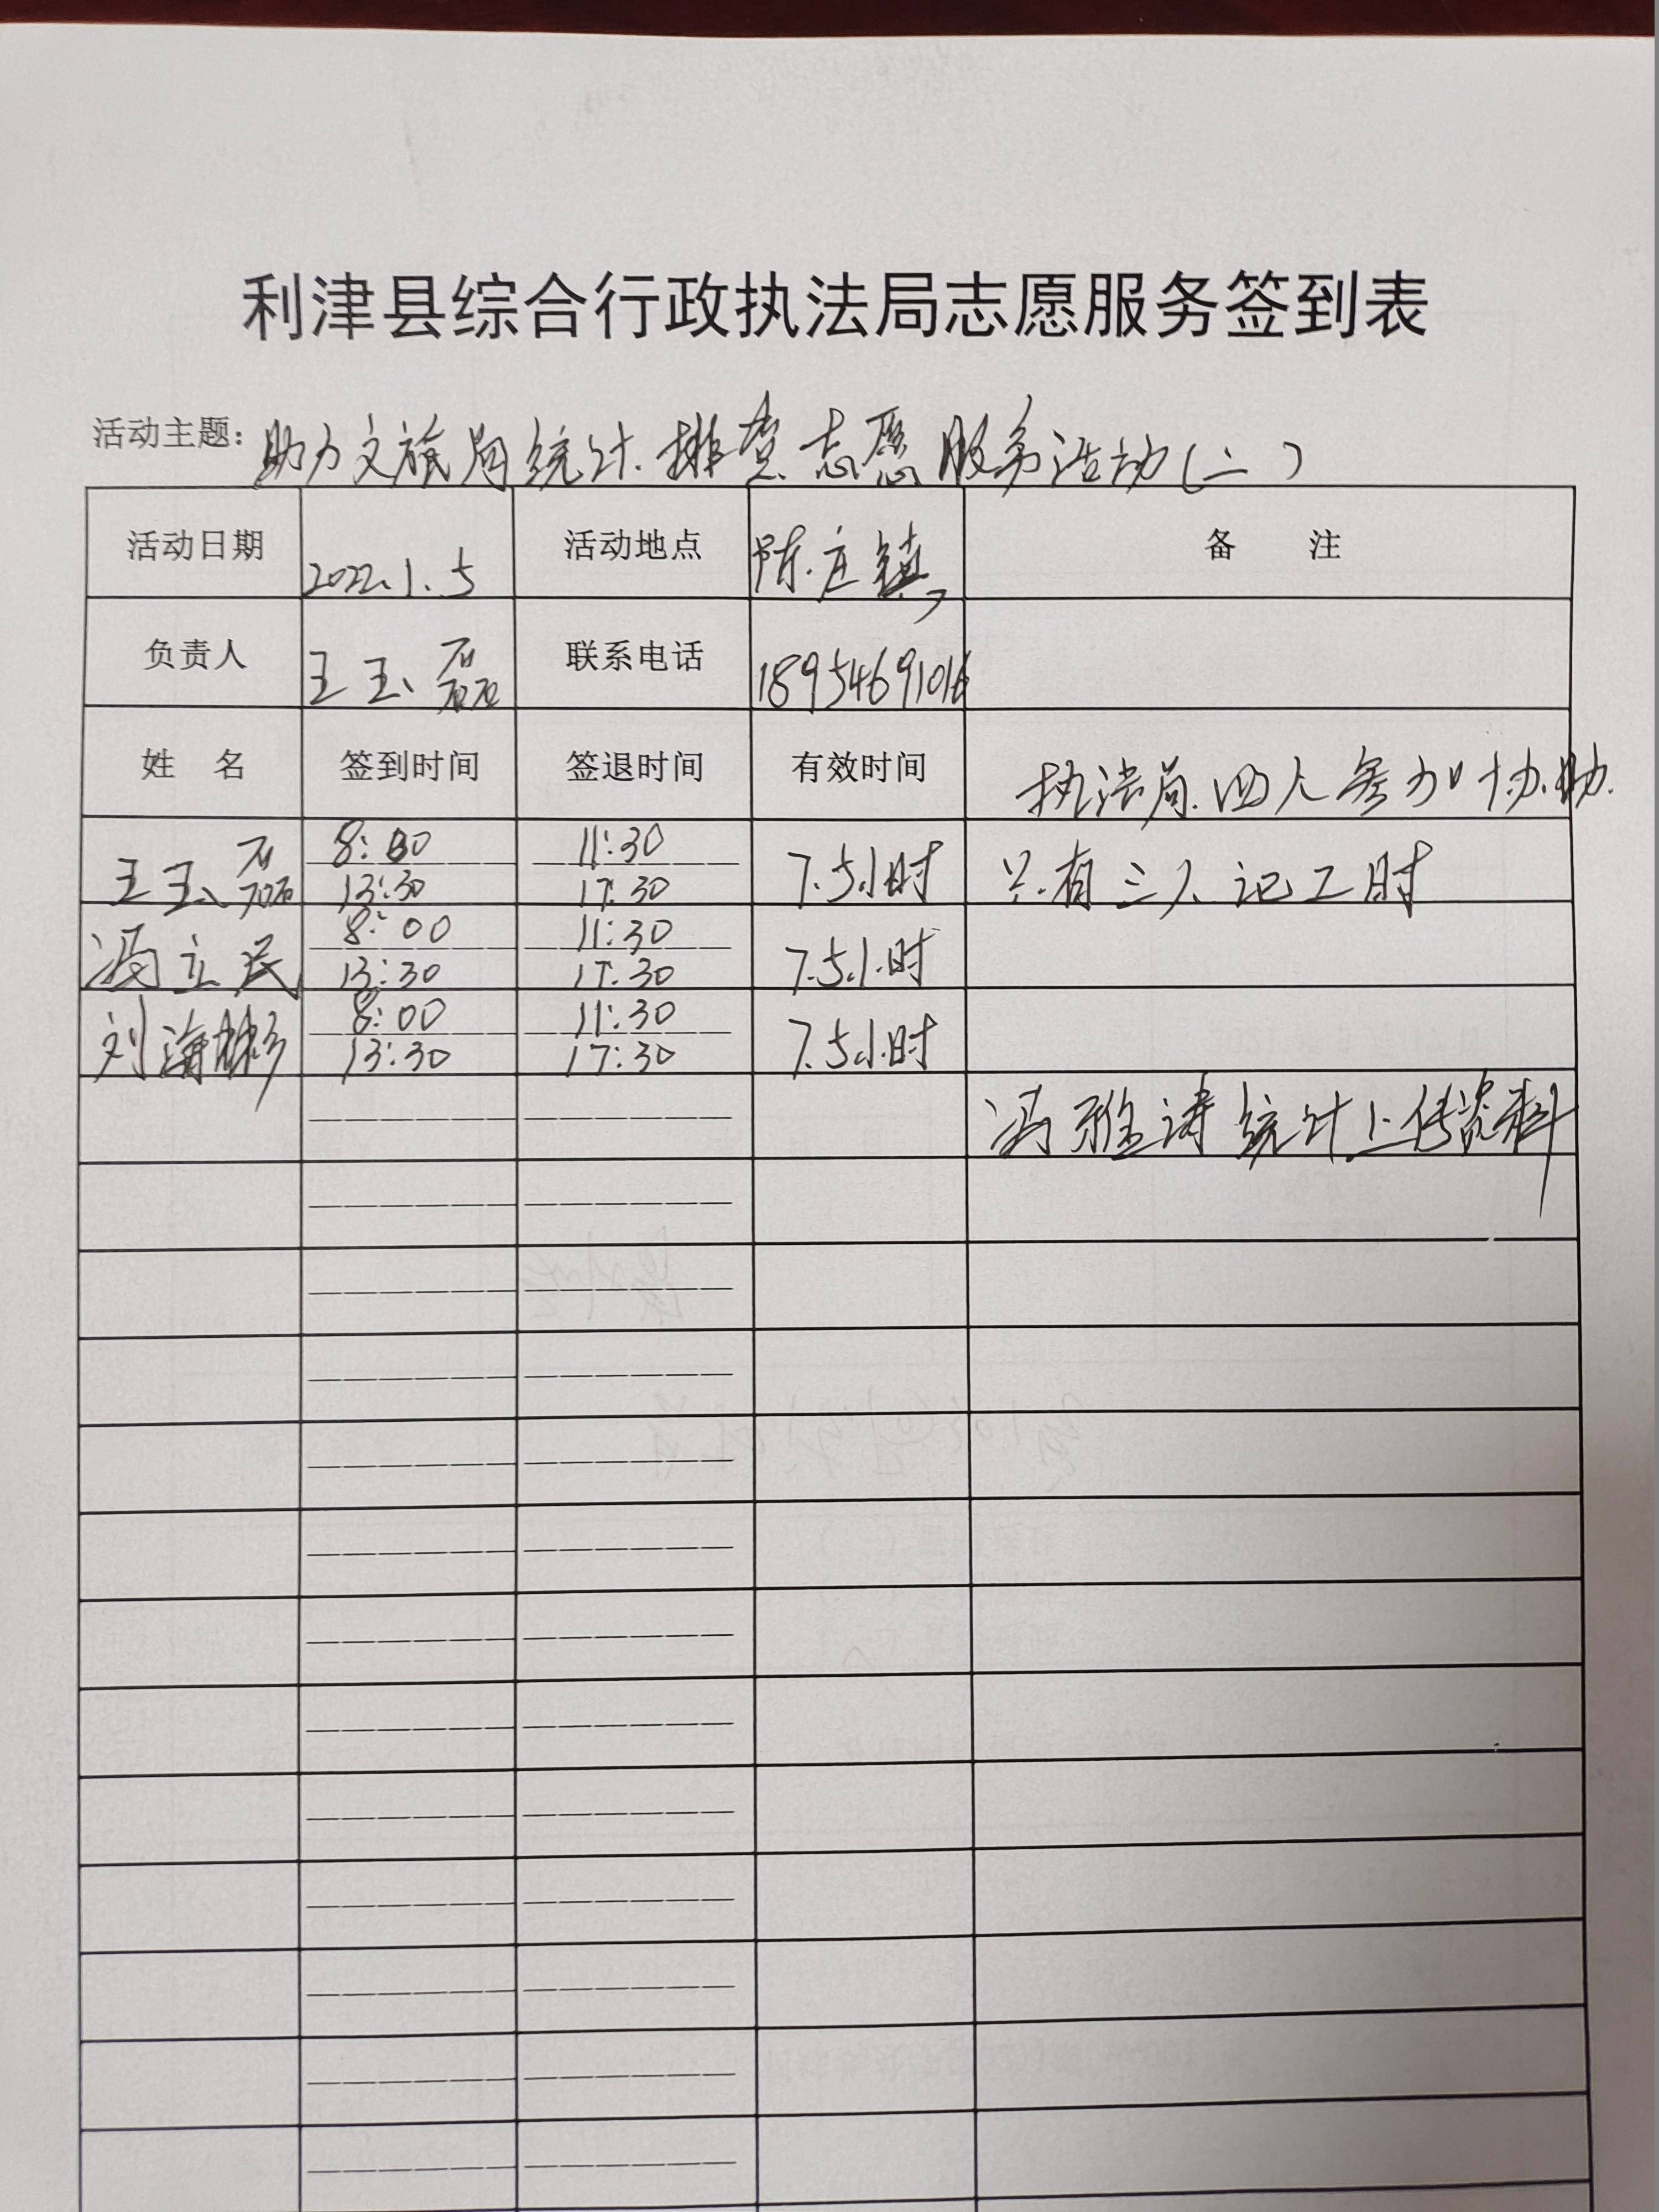 利津县综合行政执法局志愿服务签到表
活动主题：助力文旅局统计排查志愿服务活动（二）
活动日期 2022.1.5 活动地点 陈庄镇 备 注
负责人 王玉磊 联系电话 18954691016
姓 名 签到时间 签退时间 有效时间 执法局四人参加协助
王玉磊 8:00 11:30 7.5小时 只有三人记工时
13:30 17:30
冯立民 8:00 11:30 7.5小时
13:30 17:30
刘海彬 8:00 11:30 7.5小时
13:30 17:30
冯雅涛统计上传资料